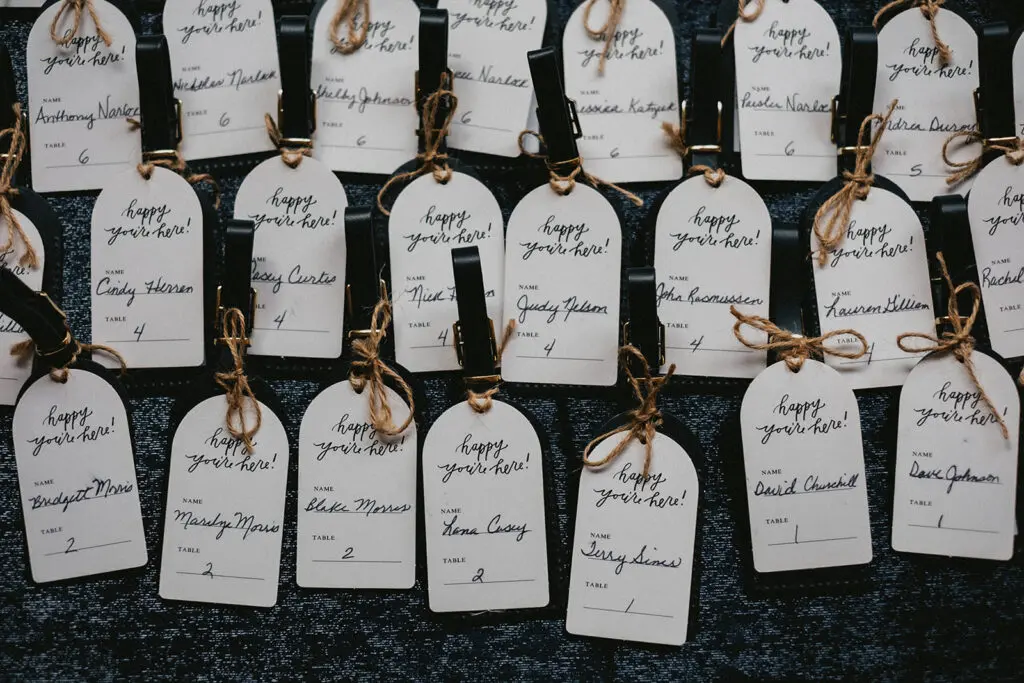 happy
you're here!
NAME
Anthony Narlock
TABLE
6
happy
you're here!
NAME
Nicholas Narlock
TABLE
6
happy
you're here!
NAME
Shelby Johnson
TABLE
6
happy
you're here!
NAME
Narlock
TABLE
6
happy
you're here!
NAME
Jessica
TABLE
6
happy
you're here!
NAME
Narlock
TABLE
6
happy
you're here!
NAME
Andrea
TABLE
5
happy
you're here!
NAME
Cindy Herren
TABLE
4
happy
you're here!
NAME
Casey Curtis
TABLE
4
happy
you're here!
NAME
Nick
TABLE
4
happy
you're here!
NAME
Judy Nelson
TABLE
4
happy
you're here!
NAME
John Rasmussen
TABLE
4
happy
you're here!
NAME
Lauren Gillian
TABLE
4
happy
you're here!
NAME
Rachel
TABLE
happy
you're here!
NAME
Bridgett Morris
TABLE
2
happy
you're here!
NAME
Marilyn Morris
TABLE
2
happy
you're here!
NAME
Blake Morris
TABLE
2
happy
you're here!
NAME
Lana Casey
TABLE
2
happy
you're here!
NAME
Terry Sims
TABLE
1
happy
you're here!
NAME
David Churchill
TABLE
1
happy
you're here!
NAME
Dave Johnson
TABLE
1